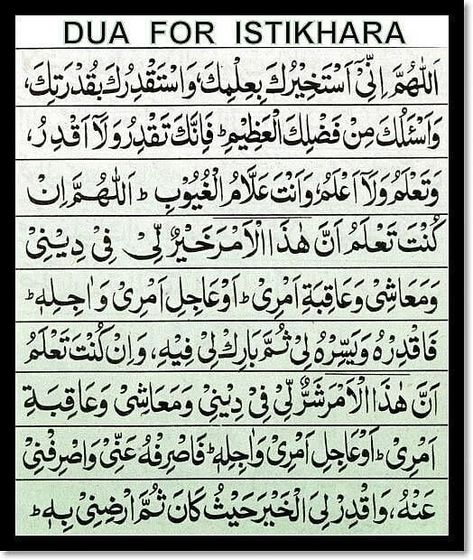 DUA FOR ISTIKHARA
اَللّٰهُمَّ اِنِّیْٓ اَسْتَخِیْرُكَ بِعِلْمِكَ، وَاَسْتَقْدِرُكَ بِقُدْرَتِكَ،
وَاَسْئَلُكَ مِنْ فَضْلِكَ الْعَظِیْمِ ؕ فَاِنَّكَ تَقْدِرُ وَلَآ اَقْدِرُ،
وَتَعْلَمُ وَلَآ اَعْلَمُ، وَاَنْتَ عَلَّامُ الْغُیُوْبِ ؕ اَللّٰهُمَّ اِنْ
كُنْتَ تَعْلَمُ اَنَّ هٰذَا الْاَمْرَ خَیْرٌ لِّیْ فِیْ دِیْنِیْ
وَمَعَاشِیْ وَعَاقِبَةِ اَمْرِیْ ؕ اَوْ عَاجِلِ اَمْرِیْ وَاٰجِلِهٖ ؕ
فَاقْدِرْهُ وَیَسِّرْهُ لِیْ ثُمَّ بَارِكْ لِیْ فِیْهِ، وَاِنْ كُنْتَ تَعْلَمُ
اَنَّ هٰذَا الْاَمْرَ شَرٌّ لِّیْ فِیْ دِیْنِیْ وَمَعَاشِیْ وَعَاقِبَةِ
اَمْرِیْ ؕ اَوْ عَاجِلِ اَمْرِیْ وَاٰجِلِهٖ ؕ فَاصْرِفْهُ عَنِّیْ وَاصْرِفْنِیْ
عَنْهُ، وَاقْدِرْ لِیَ الْخَیْرَ حَیْثُ كَانَ ثُمَّ اَرْضِنِیْ بِهٖ ؕ